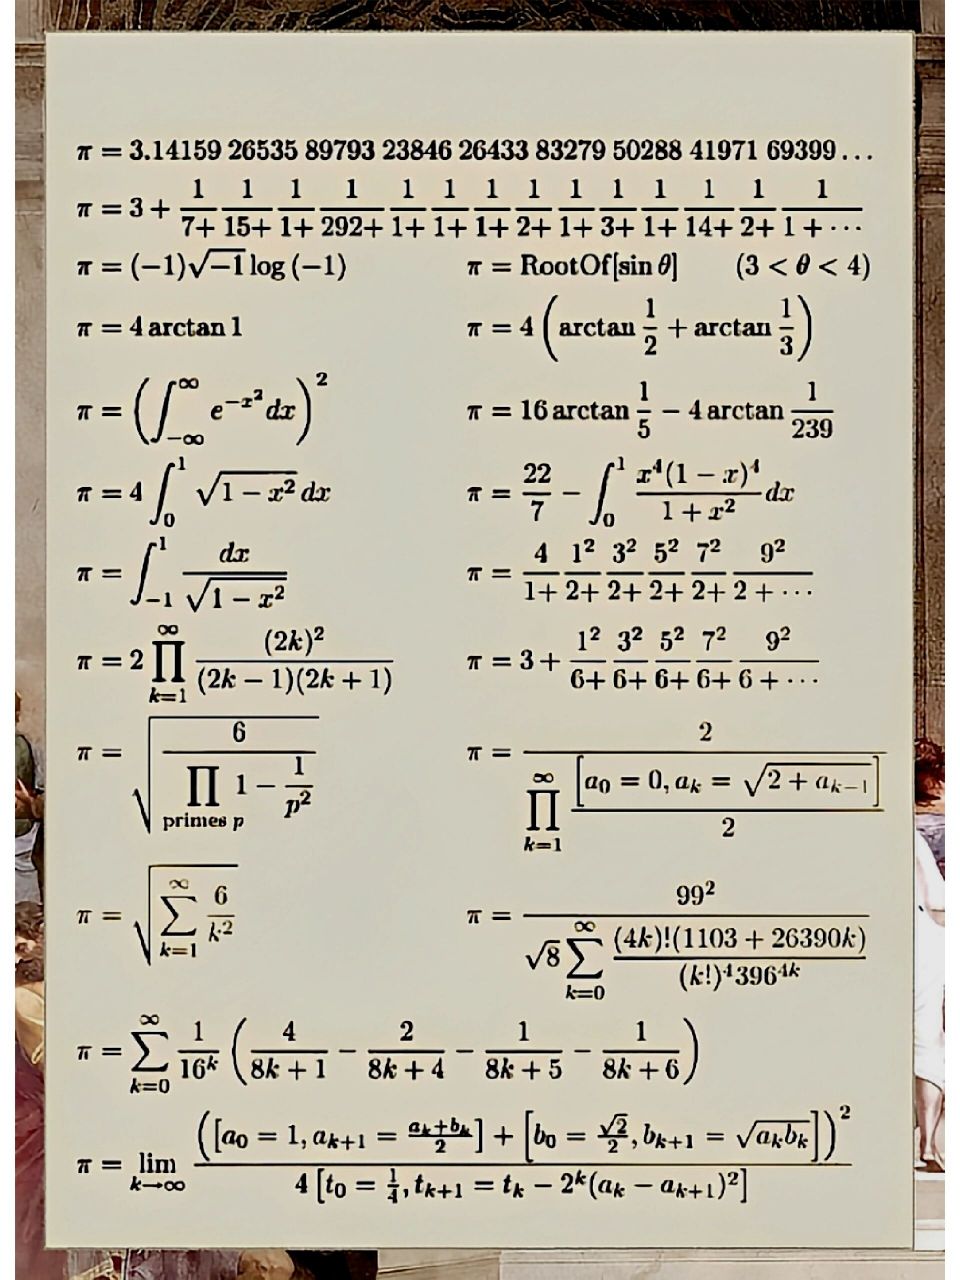 π = 3.14159 26535 89793 23846 26433 83279 50288 41971 69399...
π = 3 + 1/7+ 1/15+ 1/1+ 1/292+ 1/1+ 1/1+ 1/1+ 1/2+ 1/1+ 1/3+ 1/1+ 1/14+ 1/2+ 1/1 + ⋯
π = (−1)√−1 log (−1) π = RootOf[sin θ] (3 < θ < 4)
π = 4 arctan 1 π = 4 (arctan 1/2 + arctan 1/3)
π = (∫_{−∞}^{∞} e^{−x²} dx)² π = 16 arctan 1/5 − 4 arctan 1/239
π = 4 ∫_0^1 √(1 − x²) dx π = 22/7 − ∫_0^1 x⁴(1 − x)⁴/(1 + x²) dx
π = ∫_{−1}^1 dx/√(1 − x²) π = 4/1+ 1²/2+ 3²/2+ 5²/2+ 7²/2+ 9²/2 + ⋯
π = 2 ∏_{k=1}^{∞} (2k)²/((2k − 1)(2k + 1)) π = 3 + 1²/6+ 3²/6+ 5²/6+ 7²/6+ 9²/6 + ⋯
π = √(6/(∏_{primes p} 1 − 1/p²)) π = 2/(∏_{k=1}^{∞} [a₀ = 0, a_k = √(2 + a_{k−1})]/2)
π = √(∑_{k=1}^{∞} 6/k²) π = 99²/(√8 ∑_{k=0}^{∞} (4k)!(1103 + 26390k)/((k!)⁴396^{4k}))
π = ∑_{k=0}^{∞} 1/16^k (4/(8k + 1) − 2/(8k + 4) − 1/(8k + 5) − 1/(8k + 6))
π = lim_{k→∞} ([a₀ = 1, a_{k+1} = (a_k+b_k)/2] + [b₀ = √2/2, b_{k+1} = √(a_k b_k)])²/(4 [t₀ = 1/4, t_{k+1} = t_k − 2^k(a_k − a_{k+1})²])